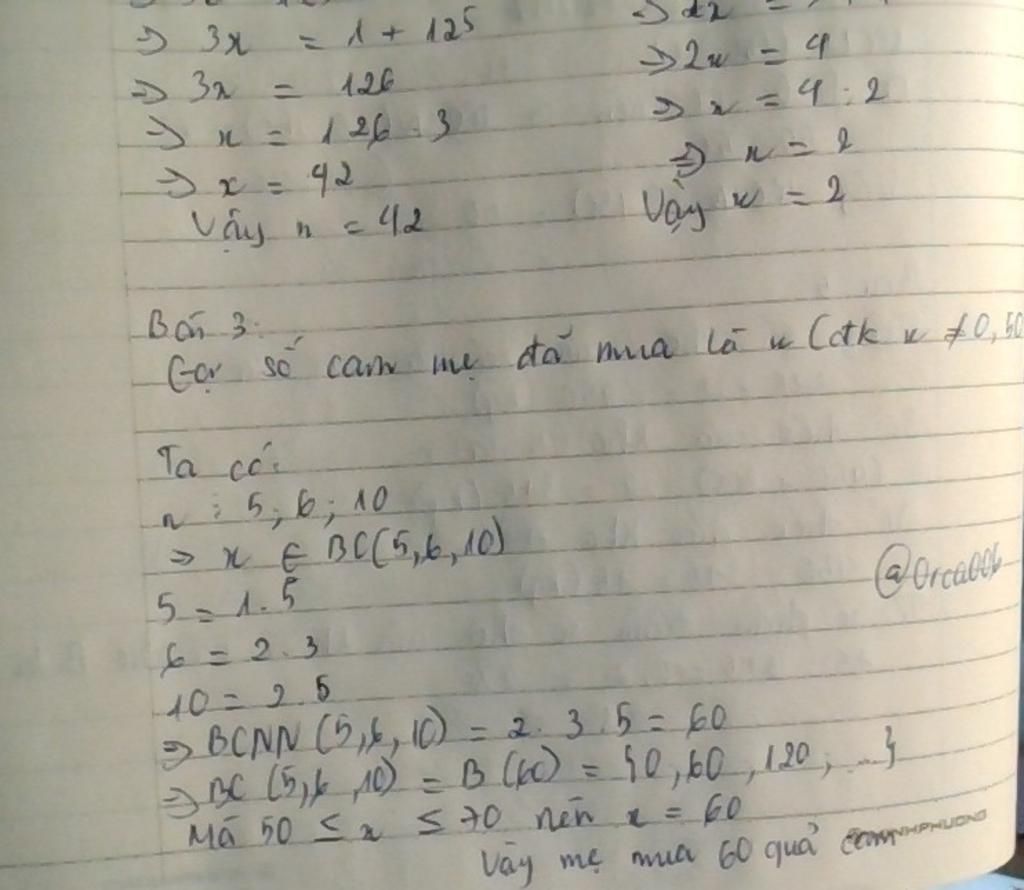 ⇒ 3x = 1 + 125
⇒ 3x = 126
⇒ x = 126 : 3
⇒ x = 42
Vậy x = 42
⇒ 2x =
⇒ 2x = 4
⇒ x = 4 : 2
⇒ x = 2
Vậy x = 2
Bài 3:
Gọi số cam mẹ đã mua là x (đk x ≠ 0, 50
Ta có:
x ⋮ 5; 6; 10
⇒ x ∈ BC(5,6,10)
@Orca006
5 = 1.5
6 = 2.3
10 = 2.5
⇒ BCNN (5,6,10) = 2.3.5 = 60
⇒ BC (5,6,10) = B(60) = {0,60,120,...}
Mà 50 ≤ x ≤ 70 nên x = 60
Vậy mẹ mua 60 quả cam